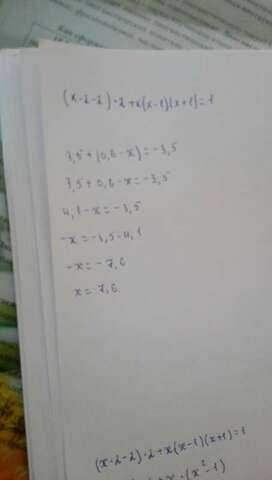 (x·2-2)·2+x(x-1)(x+1)=1
3,5+(0,6-x)=-3,5
3,5+0,6-x=-3,5
4,1-x=-3,5
-x=-3,5-4,1
-x=-7,6
x=7,6
(x·2-2)·2+x(x-1)(x+1)=1
+x·(x²-1)